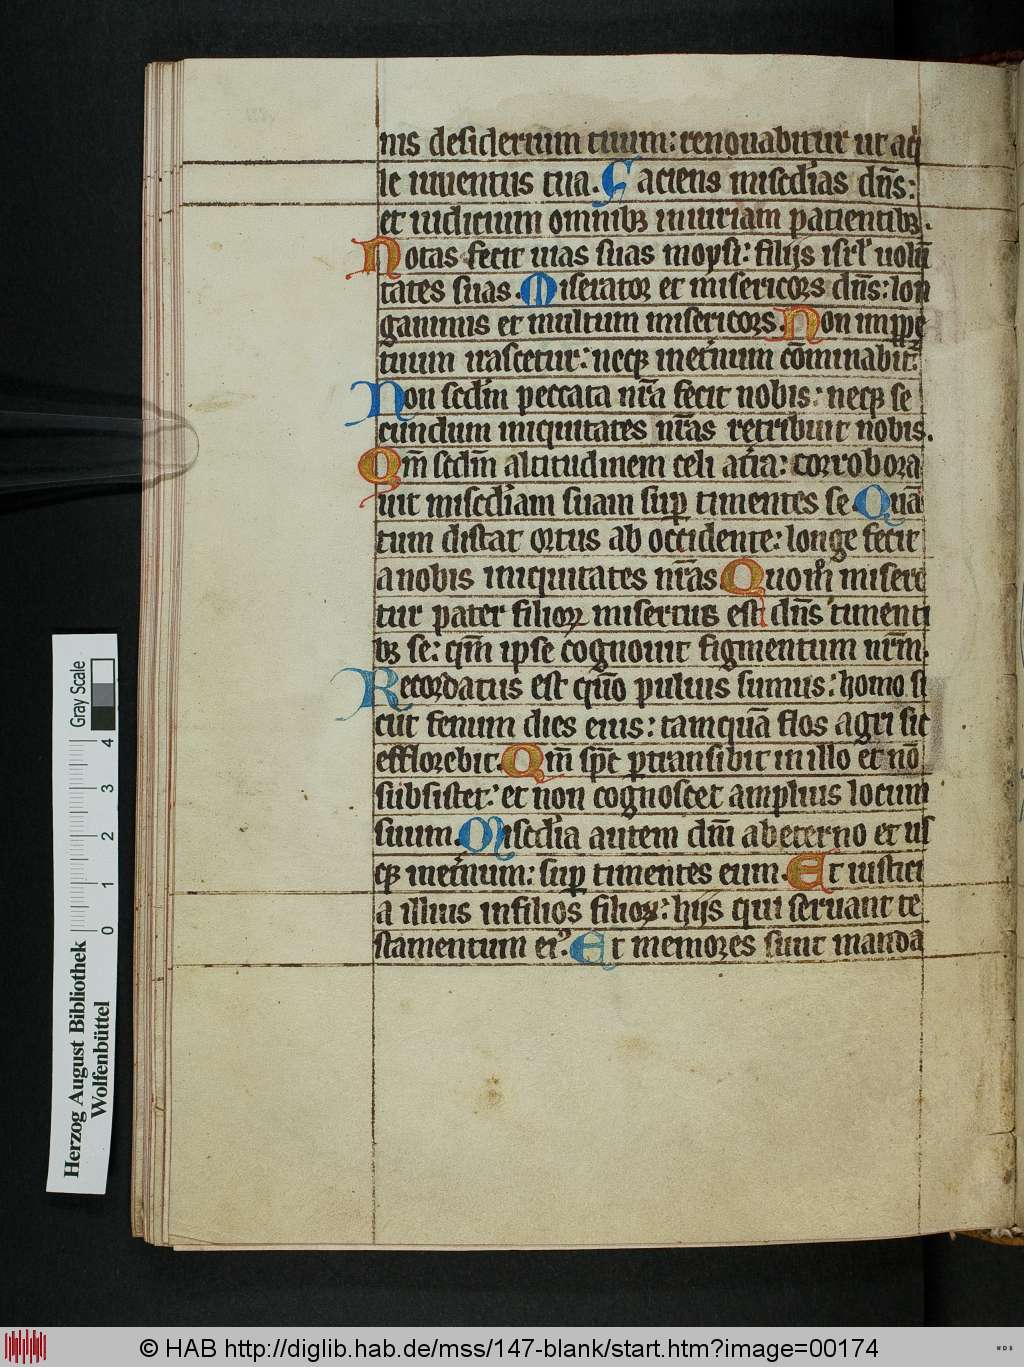 nis desiderium tuum: renouabitur ut aq̇
le iuuentus tua. Faciens misc̄dias dn̄s:
et iudicium omnibꝫ iniuriam patientibꝫ.
Notas fecit uias suas moysi: filijs isrl̄ uolū
tates suas. Miserator et misericors dn̄s: lon
ganimis et multum misericors. Non imꝑpe
tuum irascetur: necꝫ inet̄num cōminabit̄.
Non sc̄dm peccata nr̄a fecit nobis: necꝫ se
cundum iniquitates nr̄as retribuit nobis.
Qm̄ sc̄dm altitudinem celi at̄ra: corrobora
uit misc̄diam suam suꝑ timentes se. Quā
tum distat ortus ab occidente: longe fecit
a nobis iniquitates nr̄as. Quom̊ misere
tur pater filioꝝ misertus est dn̄s timenti
bꝫ se: qm̄ ipse cognouit figmentum nr̄m.
Recordatus est qm̄o puluis sumus: homo si
cut fenum dies eius: tamquā flos agri sic
efflorebit. Qm̄ sp̄c ꝑtransibit in illo et nō
subsistet: et non cognoscet amplius locum
suum. Misc̄dia autem dn̄i ab eterno et us
qꝫ inet̄num: suꝑ timentes eum. Et iustici
a illius in filios filioꝝ: hijs qui seruant te
stamentum eiꝰ. Et memores sunt manda
Gray Scale
0 1 2 3 4
Herzog August Bibliothek
Wolfenbüttel
© HAB http://diglib.hab.de/mss/147-blank/start.htm?image=00174
WDB